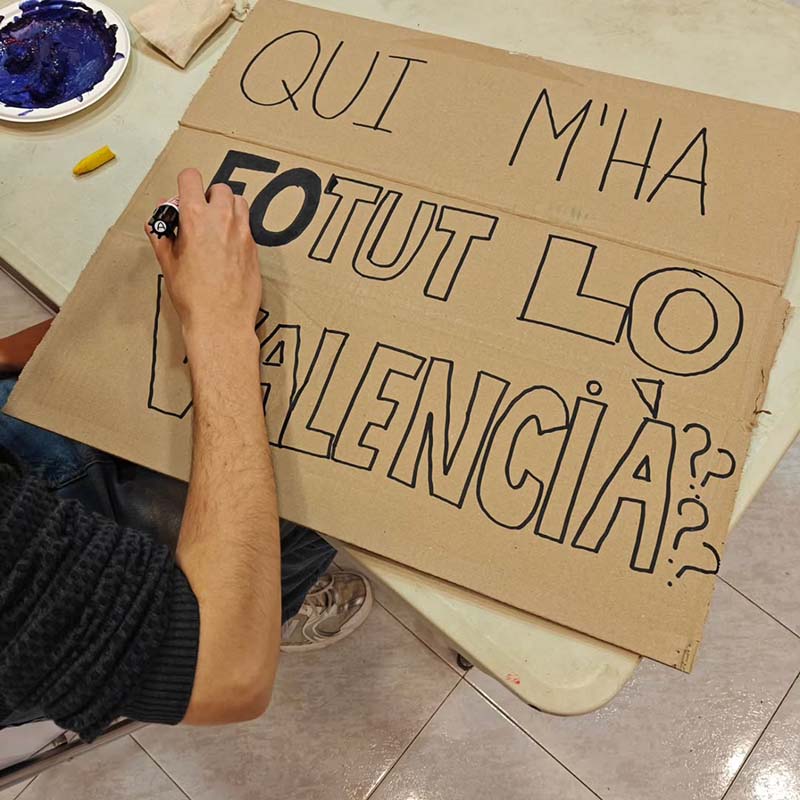 QUI M'HA
FOTUT LO
VALENCIÀ????